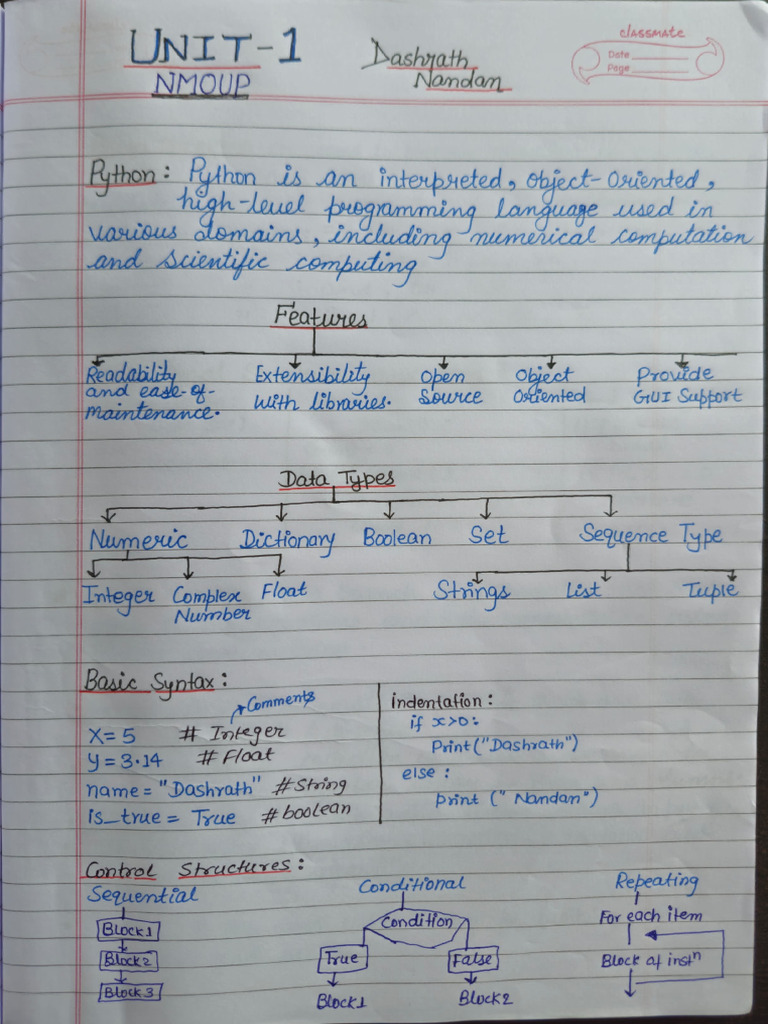 UNIT-1
NMOUP
Dashrath
Nandan
classmate
Date
Page
Python: Python is an interpreted, object-Oriented,
high-level programming language used in
various domains, including numerical computation
and scientific computing
Features
Readability
and ease-of-
maintenance.
Extensibility
with libraries.
Open
Source
Object
Oriented
Provide
GUI Support
Data Types
Numeric Dictionary Boolean Set Sequence Type
Integer Complex
Number Float Strings List Tuple
Basic Syntax:
Comments
X=5 # Integer
y=3.14 # Float
name="Dashrath" #String
is_true= True #boolean
indentation:
if x>0:
Print("Dashrath")
else:
print ("Nandan")
Control Structures:
Sequential
Block1
Block2
Block3
Conditional
Condition
True False
Block1 Block2
Repeating
For each item
Block of instⁿ